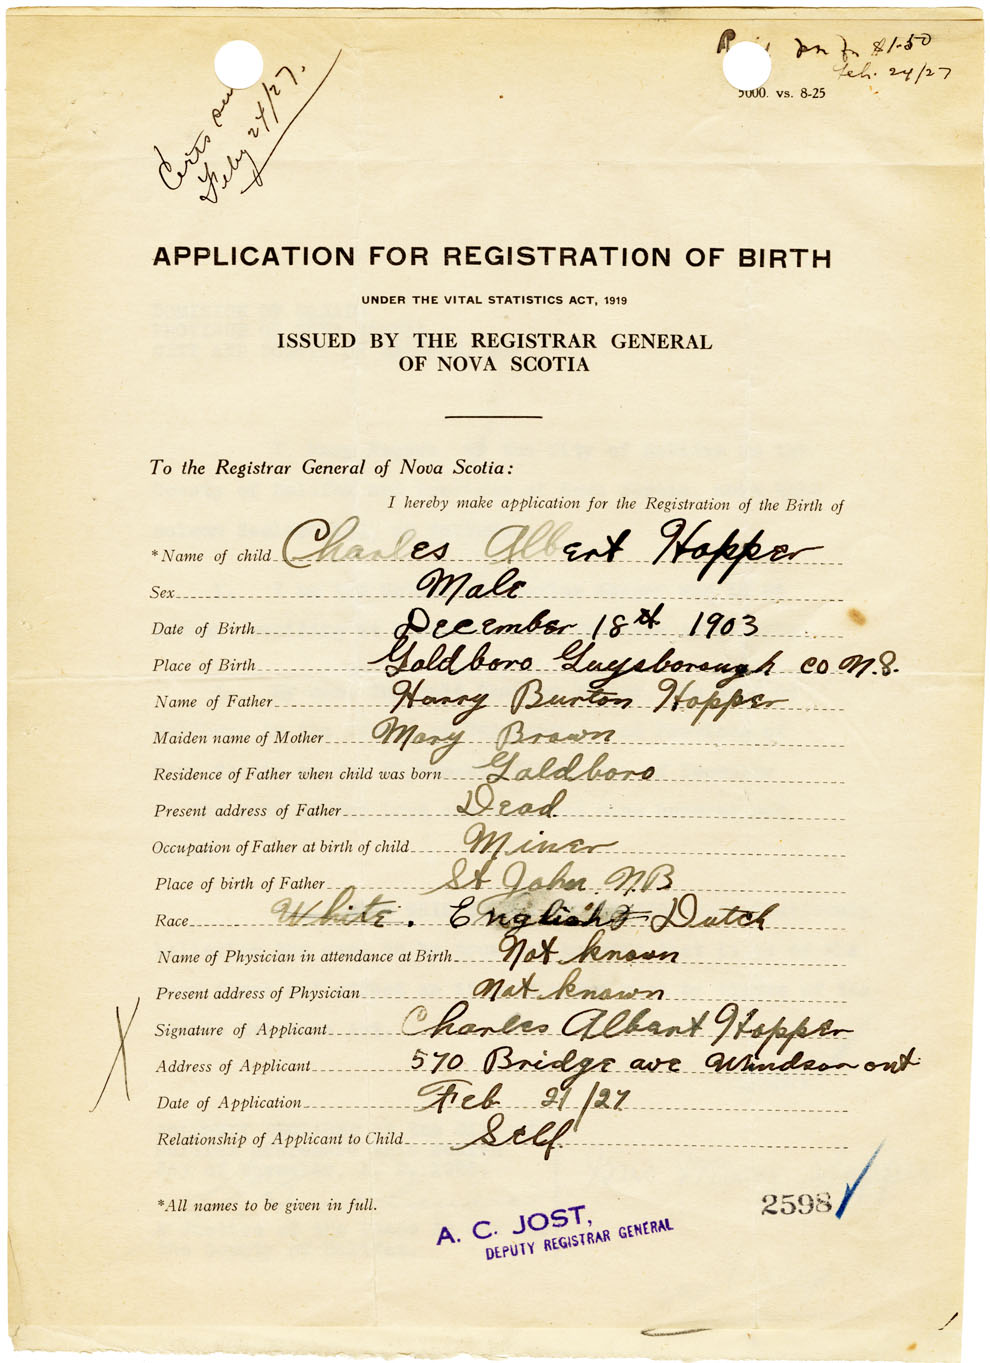 pn fr $1.50
Feb. 24/27
5000. vs. 8-25
Certs
Feby 24/27.
APPLICATION FOR REGISTRATION OF BIRTH
UNDER THE VITAL STATISTICS ACT, 1919
ISSUED BY THE REGISTRAR GENERAL
OF NOVA SCOTIA
To the Registrar General of Nova Scotia:
I hereby make application for the Registration of the Birth of
*Name of child Charles Albert Hopper
Sex Male
Date of Birth December 18th 1903
Place of Birth Goldboro Guysborough co N.S.
Name of Father Harry Burton Hopper
Maiden name of Mother Mary Brown
Residence of Father when child was born Goldboro
Present address of Father Dead
Occupation of Father at birth of child Miner
Place of birth of Father St John N.B
Race White. English & Dutch
Name of Physician in attendance at Birth Not known
Present address of Physician Not known
Signature of Applicant Charles Albert Hopper
Address of Applicant 570 Bridge ave Windsor ont
Date of Application Feb 21/27
Relationship of Applicant to Child Self
*All names to be given in full.
2598
A. C. JOST,
DEPUTY REGISTRAR GENERAL